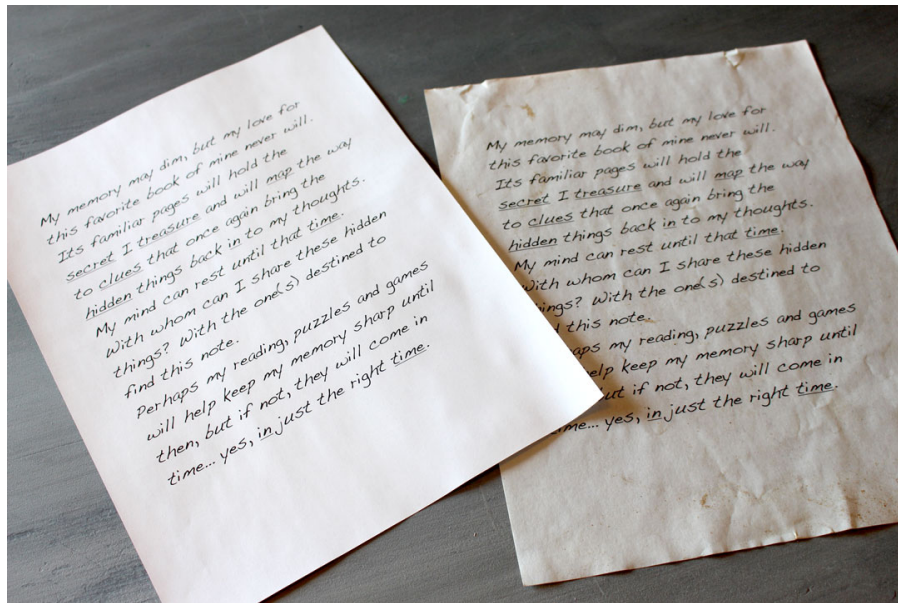 My memory may dim, but my love for
this favorite book of mine never will.
Its familiar pages will hold the
secret I treasure and will map the way
to clues that once again bring the
hidden things back in to my thoughts.
My mind can rest until that time.
With whom can I share these hidden
things? With the one(s) destined to
find this note.
Perhaps my reading, puzzles and games
will help keep my memory sharp until
then, but if not, they will come in
time... yes, in just the right time.
My memory may dim, but my love for
this favorite book of mine never will.
Its familiar pages will hold the
secret I treasure and will map the way
to clues that once again bring the
hidden things back in to my thoughts.
My mind can rest until that time.
With whom can I share these hidden
things? With the one(s) destined to
this note.
my reading, puzzles and games
help keep my memory sharp until
but if not, they will come in
time... yes, in just the right time.